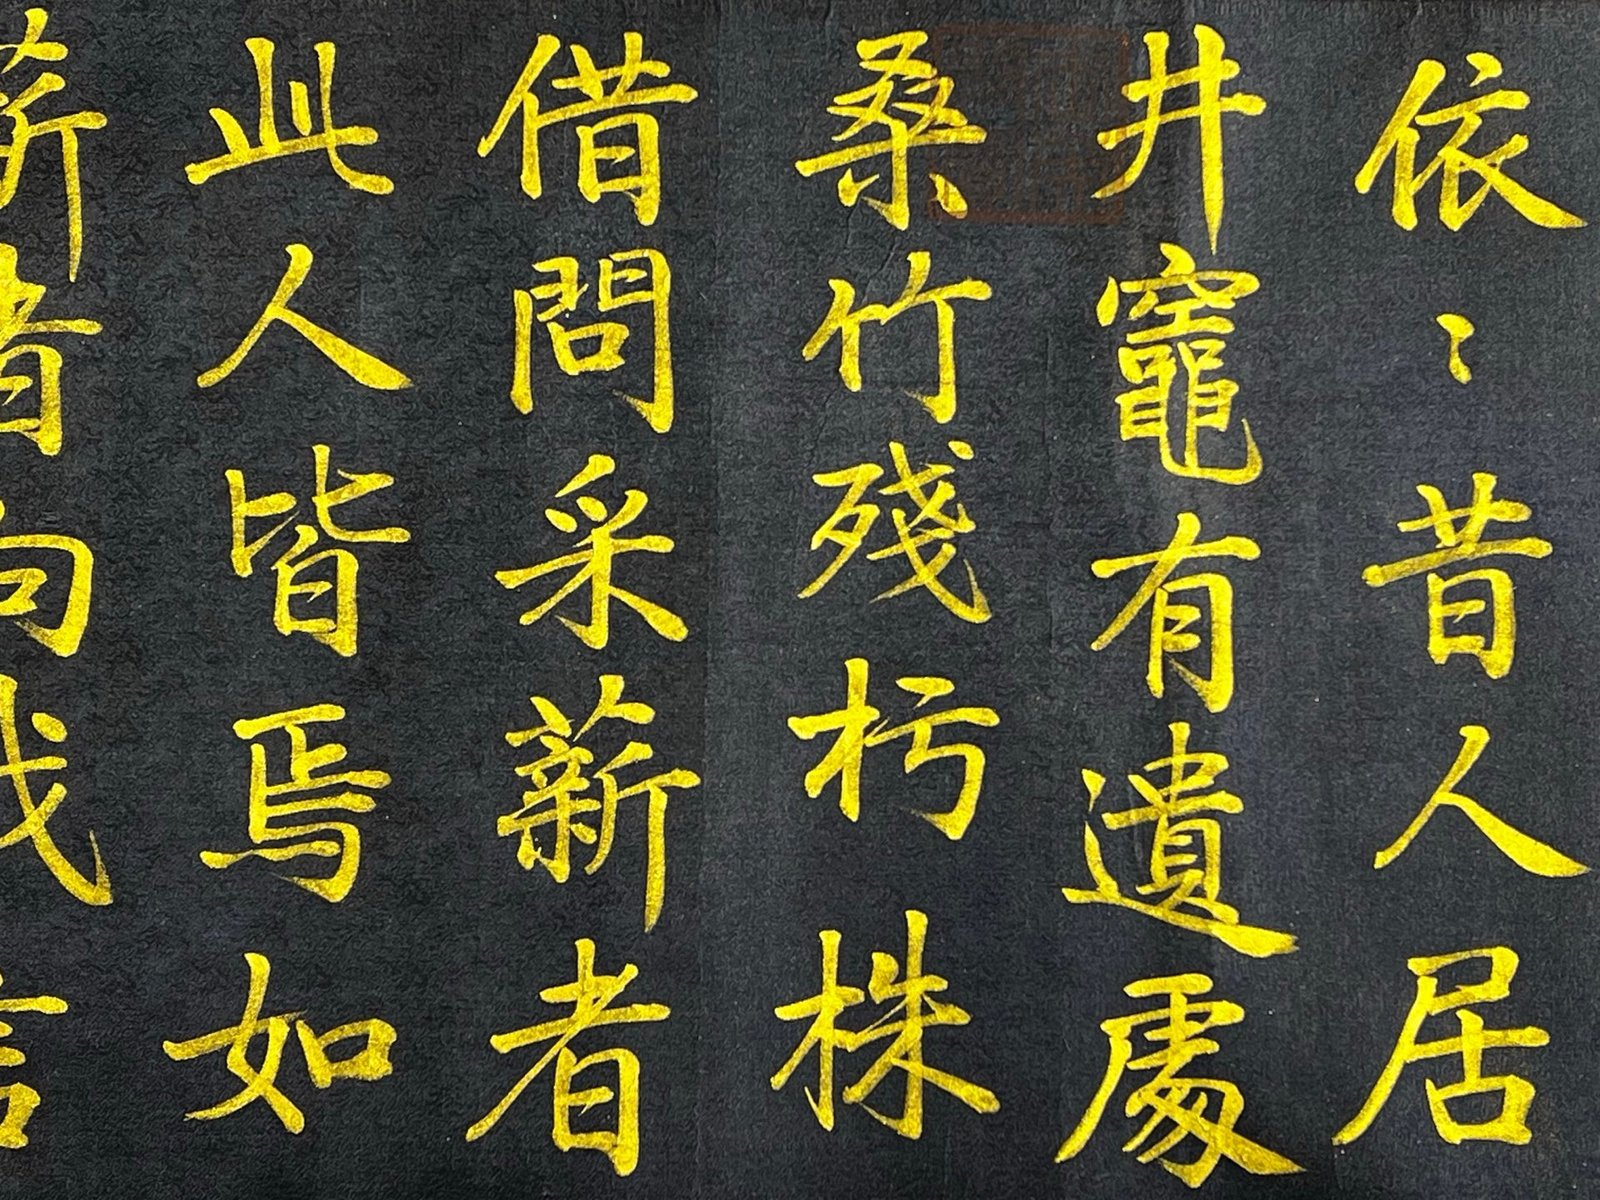 依〻昔人居
井竈有遺處
桑竹殘朽株
借問采薪者
此人皆焉如
薪者向我言